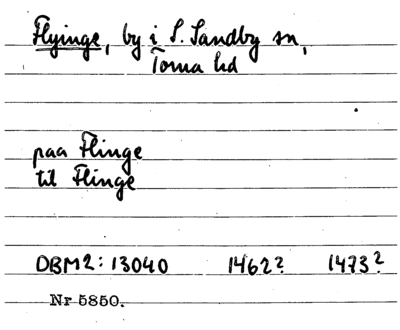 Flyinge, by i S. Sandby sn,
Torna hd
paa Flinge
til Flinge
DBM2: 13040 1462? 1473?
Nr 5850.